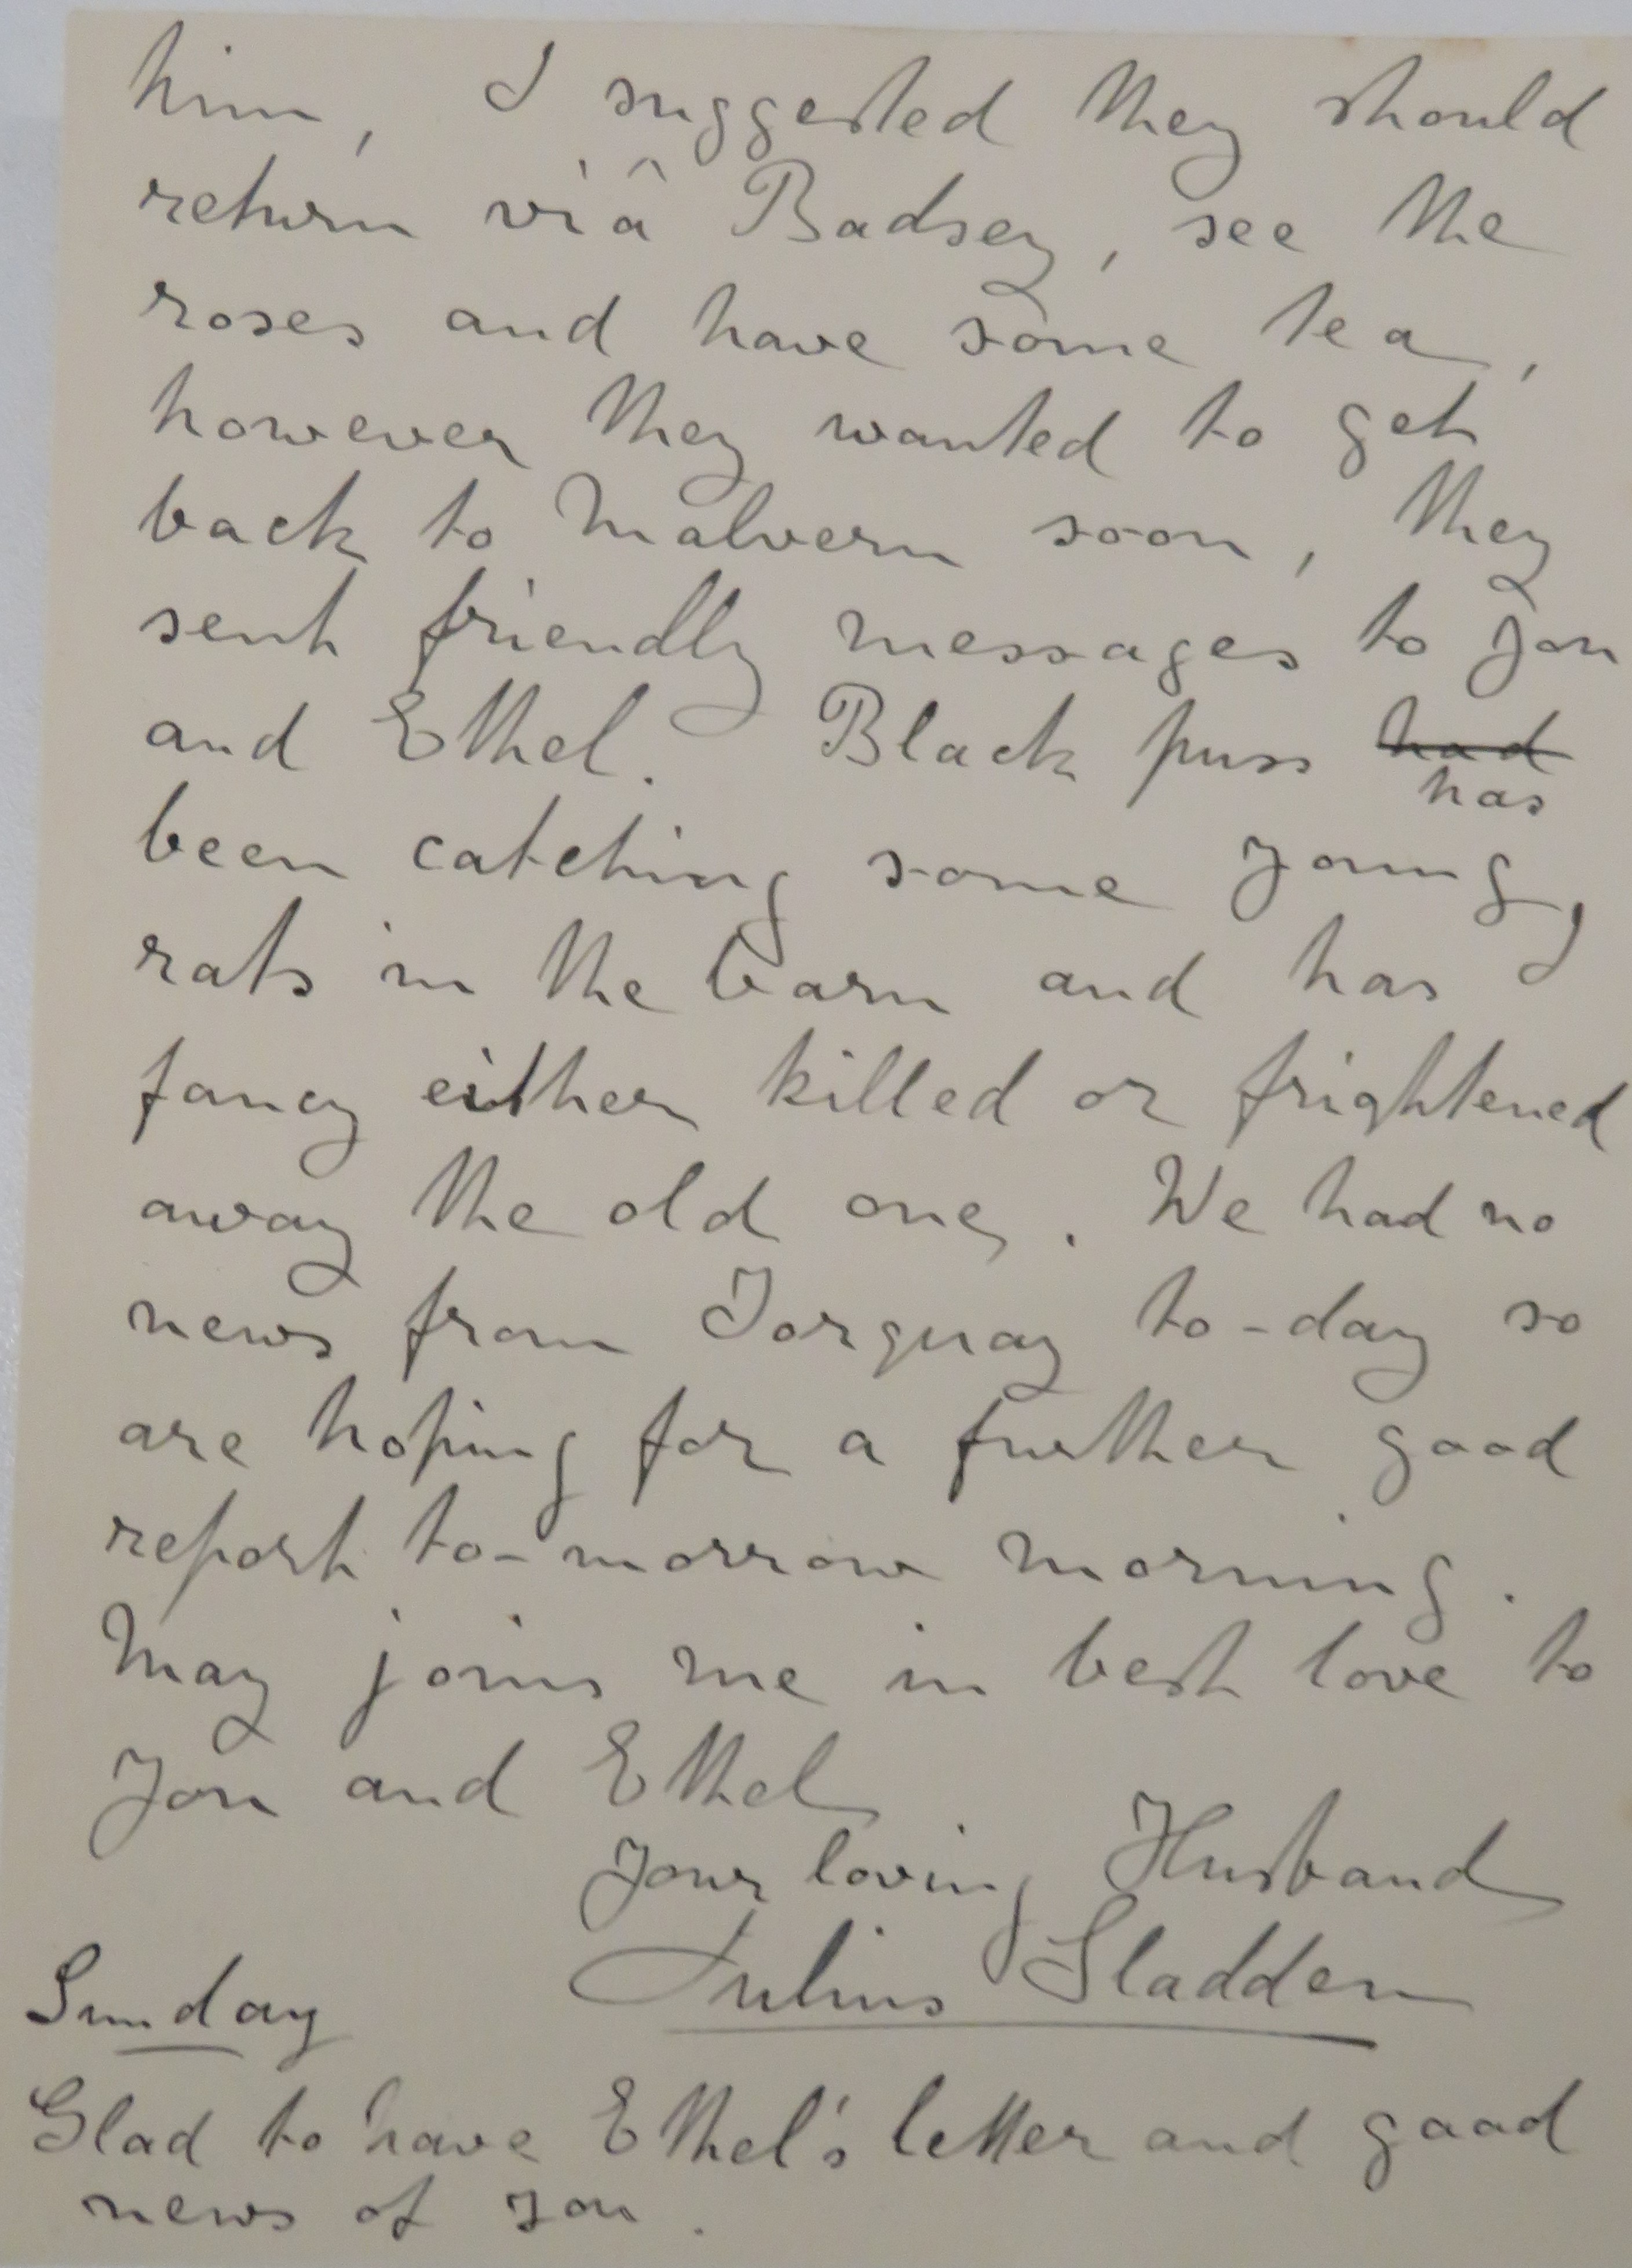 him, I suggested they should
return viâ Badsey, see the
roses and have some tea,
however they wanted to get
back to Malvern soon, they
sent friendly messages to you
and Ethel. Black puss had
has
been catching some young
rats in the barn and has I
fancy either killed or frightened
away the old one. We had no
news from Torquay to-day so
are hoping for a further good
report to-morrow morning.
May joins me in best love to
you and Ethel
Your loving Husband
Julius Sladden
Sunday
Glad to have Ethel's letter and good
news of you.